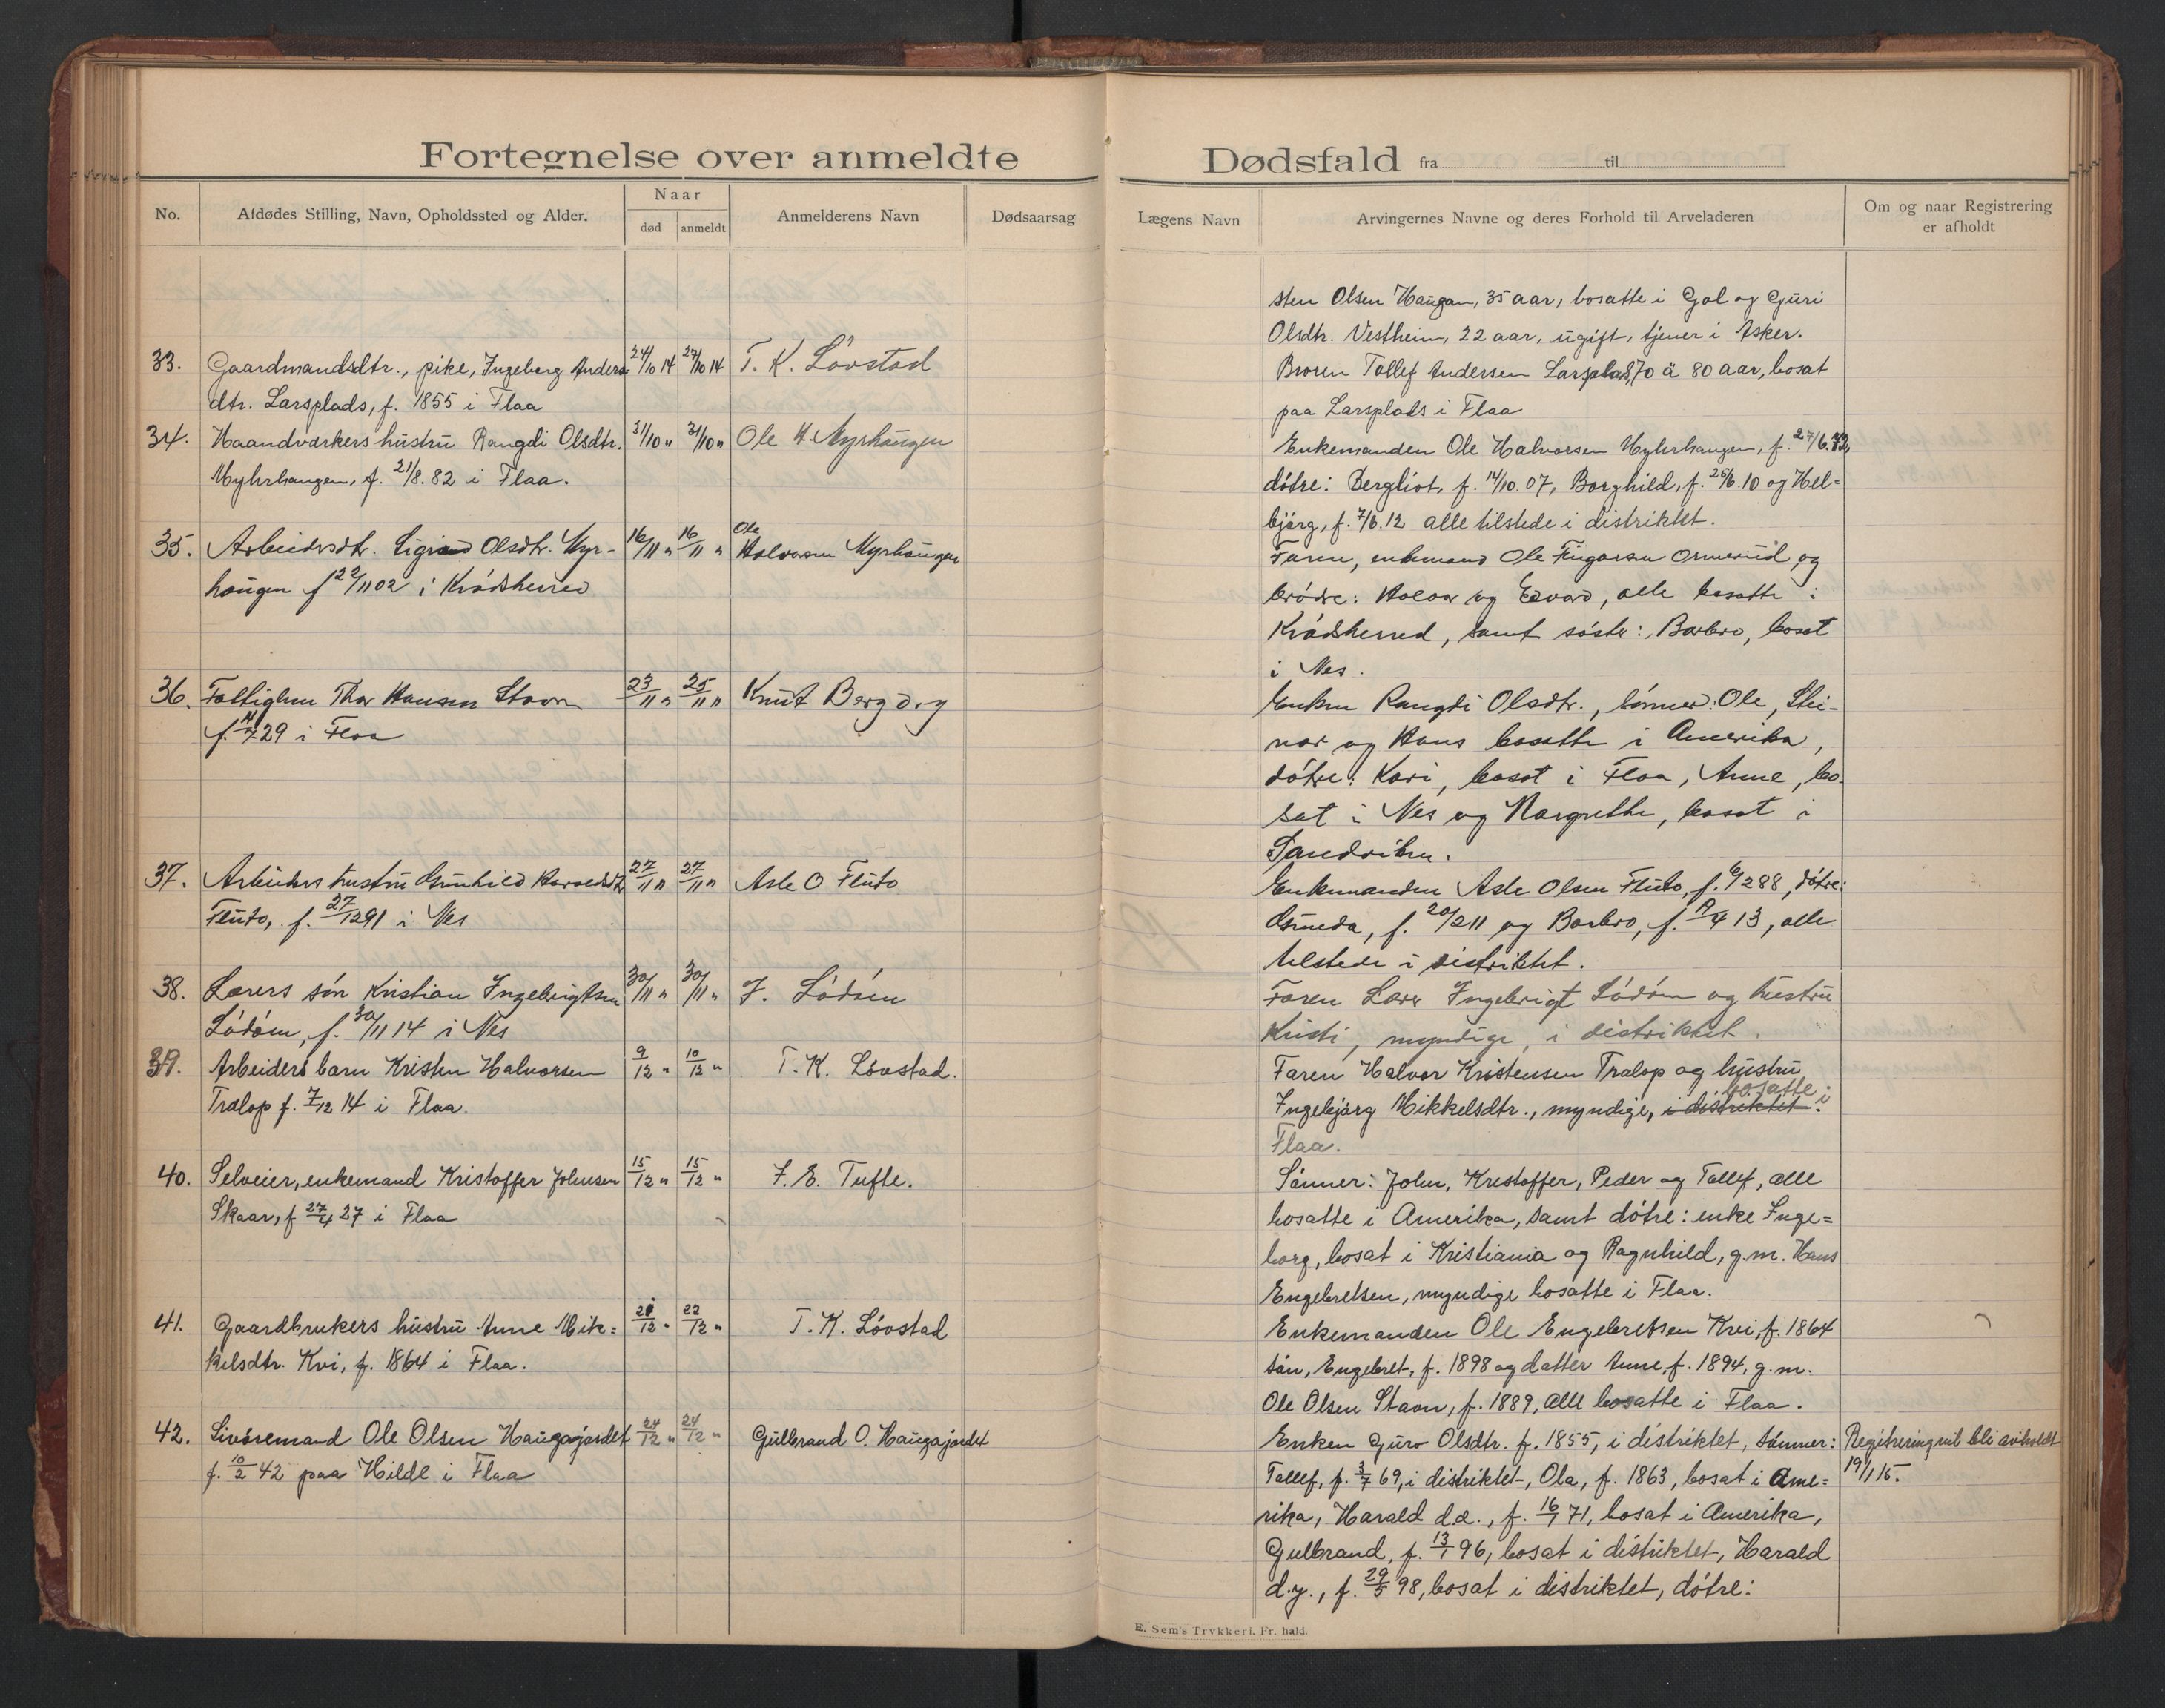 Fortegnelse over anmeldte
No.
Afdødes Stilling, Navn, Opholdssted og Alder.
Naar
død
anmeldt
Anmelderens Navn
Dødsaarsag
33. Gaardmandsdtr., pike, Ingeborg Anders- 24/10 14 27/10 14 T. K. Løvstad
dtr. Larsplads, f. 1855 i Flaa
34. Haandværkers hustru Rangdi Olsdtr. 31/10 " 31/10 " Ole H. Myrhaugen
Myhrhaugen, f. 21/8. 82 i Flaa.
35. Arbeidersdtr. Sigrid Olsdtr. Myr- 16/11 " 16/11 " Ole Halvorsen Myrhaugen
haugen f 22/11 02 i Krødsherred
36. Fattiglem Thor Hansen Stavn 23/11 " 25/11 " Knut Berg d.y
f. 29 i Flaa
37. Arbeiders hustru Gunhild Haraldsdtr 27/11 " 27/11 " Asle O Fluto
Fluto, f. 27/12 91 i Ves
38. Lærers søn Kristian Ingebrigtsen 30/11 " 30/11 " I. Lødøen
Lødøen, f. 30/11 14 i Nes
39. Arbeiders barn Kristen Halvorsen 9/12 " 10/12 " T. K. Løvstad.
Trælop f. 7/12 14 i Flaa.
40. Selveier, enkemand Kristoffer Johnsen 15/12 " 15/12 " F. E. Tufte.
Skaar, f 27/4 27 i Flaa
41. Gaardbrukers hustru Anne Mik= 21/12 " 22/12 " T. K. Løvstad
kelsdtr. Kvi, f. 1864 i Flaa.
42. Livøremand Ole Olsen Haugajordet 24/12 " 24/12 " Gulbrand O. Haugajordet
f. 10/2 42 paa Hilde i Flaa
Dødsfald fra til
Lægens Navn
Arvingernes Navne og deres Forhold til Arveladeren
Om og naar Registrering
er afholdt
sten Olsen Haugan, 35 aar, bosatte i Gol og Guri
Olsdtr. Vestheim, 22 aar, ugift, tjener i Asker.
Broren Tollef Andersen Larsplads, 70 à 80 aar, bosat
paa Larsplads i Flaa
Enkemanden Ole Halvorsen Myhrhaugen, f. 27/6.
døtre: Bergliot, f. 14/10. 07, Borghild, f. 25/6. 10 og Hel=
bjørg, f. 7/6. 12 alle tilstede i distriktet.
Faren, enkemand Ole Fingarsen Ormerud og
brødre: Halvor og Edvard, alle bosatte i
Krødsherred, samt søster: Barbro, bosat
i Nes.
Enken Rangdi Olsdtr., sønner: Ole, Stei-
nar og Hans bosatte i Amerika,
døtre: Kari, bosat i Flaa, Anne, bo-
sat i Nes og Margrethe, bosat i
Sandviken.
Enkemanden Asle Olsen Fluto, f. 6/2 88, døtre:
Gunda, f. 20/2 11 og Barbro, f. 4 13, alle
tilstede i distriktet.
Faren Lærer Ingebrigt Lødøen og hustru
Kristi, myndige, i distriktet.
Faren Halvor Kristensen Trælop og hustru
Ingebjørg Mikkelsdtr., myndige, i distriktet. bosatte i
Flaa.
Sønner: John, Kristoffer, Peder og Tollef, alle
bosatte i Amerika, samt døtre: enke Inge=
borg, bosat i Kristiania og Ragnhild, g.m. Hans
Engebretsen, myndige bosatte i Flaa.
Enkemanden Ole Engebretsen Kvi, f. 1864
søn, Engebret, f. 1898 og datter Anne, f. 1894, g.m.
Ole Olsen Stavn, f. 1889, alle bosatte i Flaa.
Enken Guro Olsdtr. f. 1855, i distriktet, sønner: Registrering vil bli avholdt
Tollef, f. 3/7 69, i distriktet, Ola, f. 1863, bosat i Ame= 19/1 15.
rika, Harald d.e., f. 16/1 71, bosat i Amerika,
Gulbrand, f. 13/1 96, bosat i distriktet, Harald
d.y., f. 29/5 98, bosat i distriktet, døtre:
E. Sem's Trykkeri. Fr. hald.